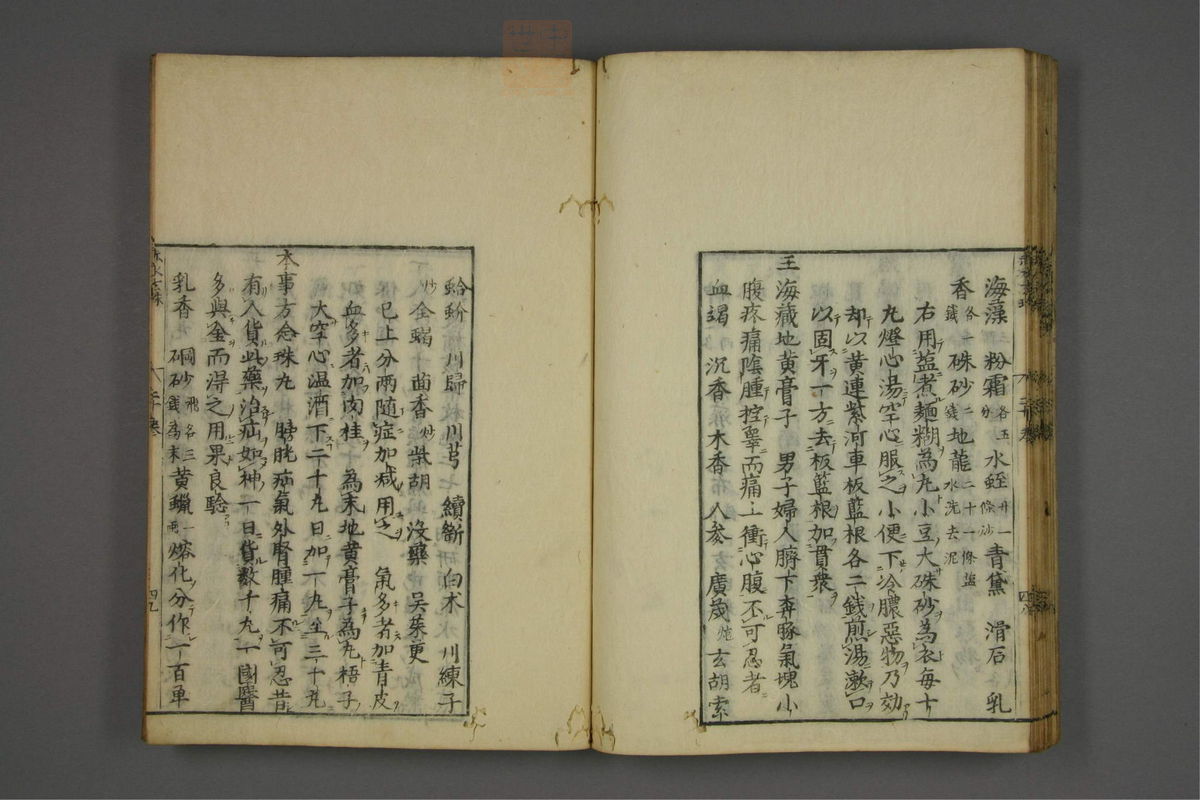 海藻 粉霜各五分 水蛭廿一條 青黛 滑石 乳
香各一錢 硃砂二錢 地龍二十一條塩水洗去泥
右用䀋煮麵糊為丸小豆大硃砂為衣每十
丸燈心湯空心服之小便下冷膿惡物乃効
却以黄連紫河車板藍根各二錢煎湯漱口
以固牙一方去板籃根加貫衆
王海藏地黄膏子 男子婦人臍下奔豚氣塊小
腹疼痛陰腫控睾而痛上衝心腹不可忍者
血竭 沉香 木香 人參 廣茂炮 玄胡索
蛤蚧 川歸 川芎 續斷 白术 川練子
炒 全蝎 茴香炒 柴胡 沒藥 吴茱更
已上分两随症加减用之 氣多者加青皮
血多者加肉桂 為末地黄膏子為丸梧子
大空心温酒下二十丸日加一丸至三十丸
本事方念珠丸 膀胱疝氣外腎腫痛不可忍昔
有人貨此藥治疝如神一日貨数千丸一國醫
多與金而得之用果良驗
乳香 硇砂飛各三錢為末 黄蠟一兩熔化分作一百単